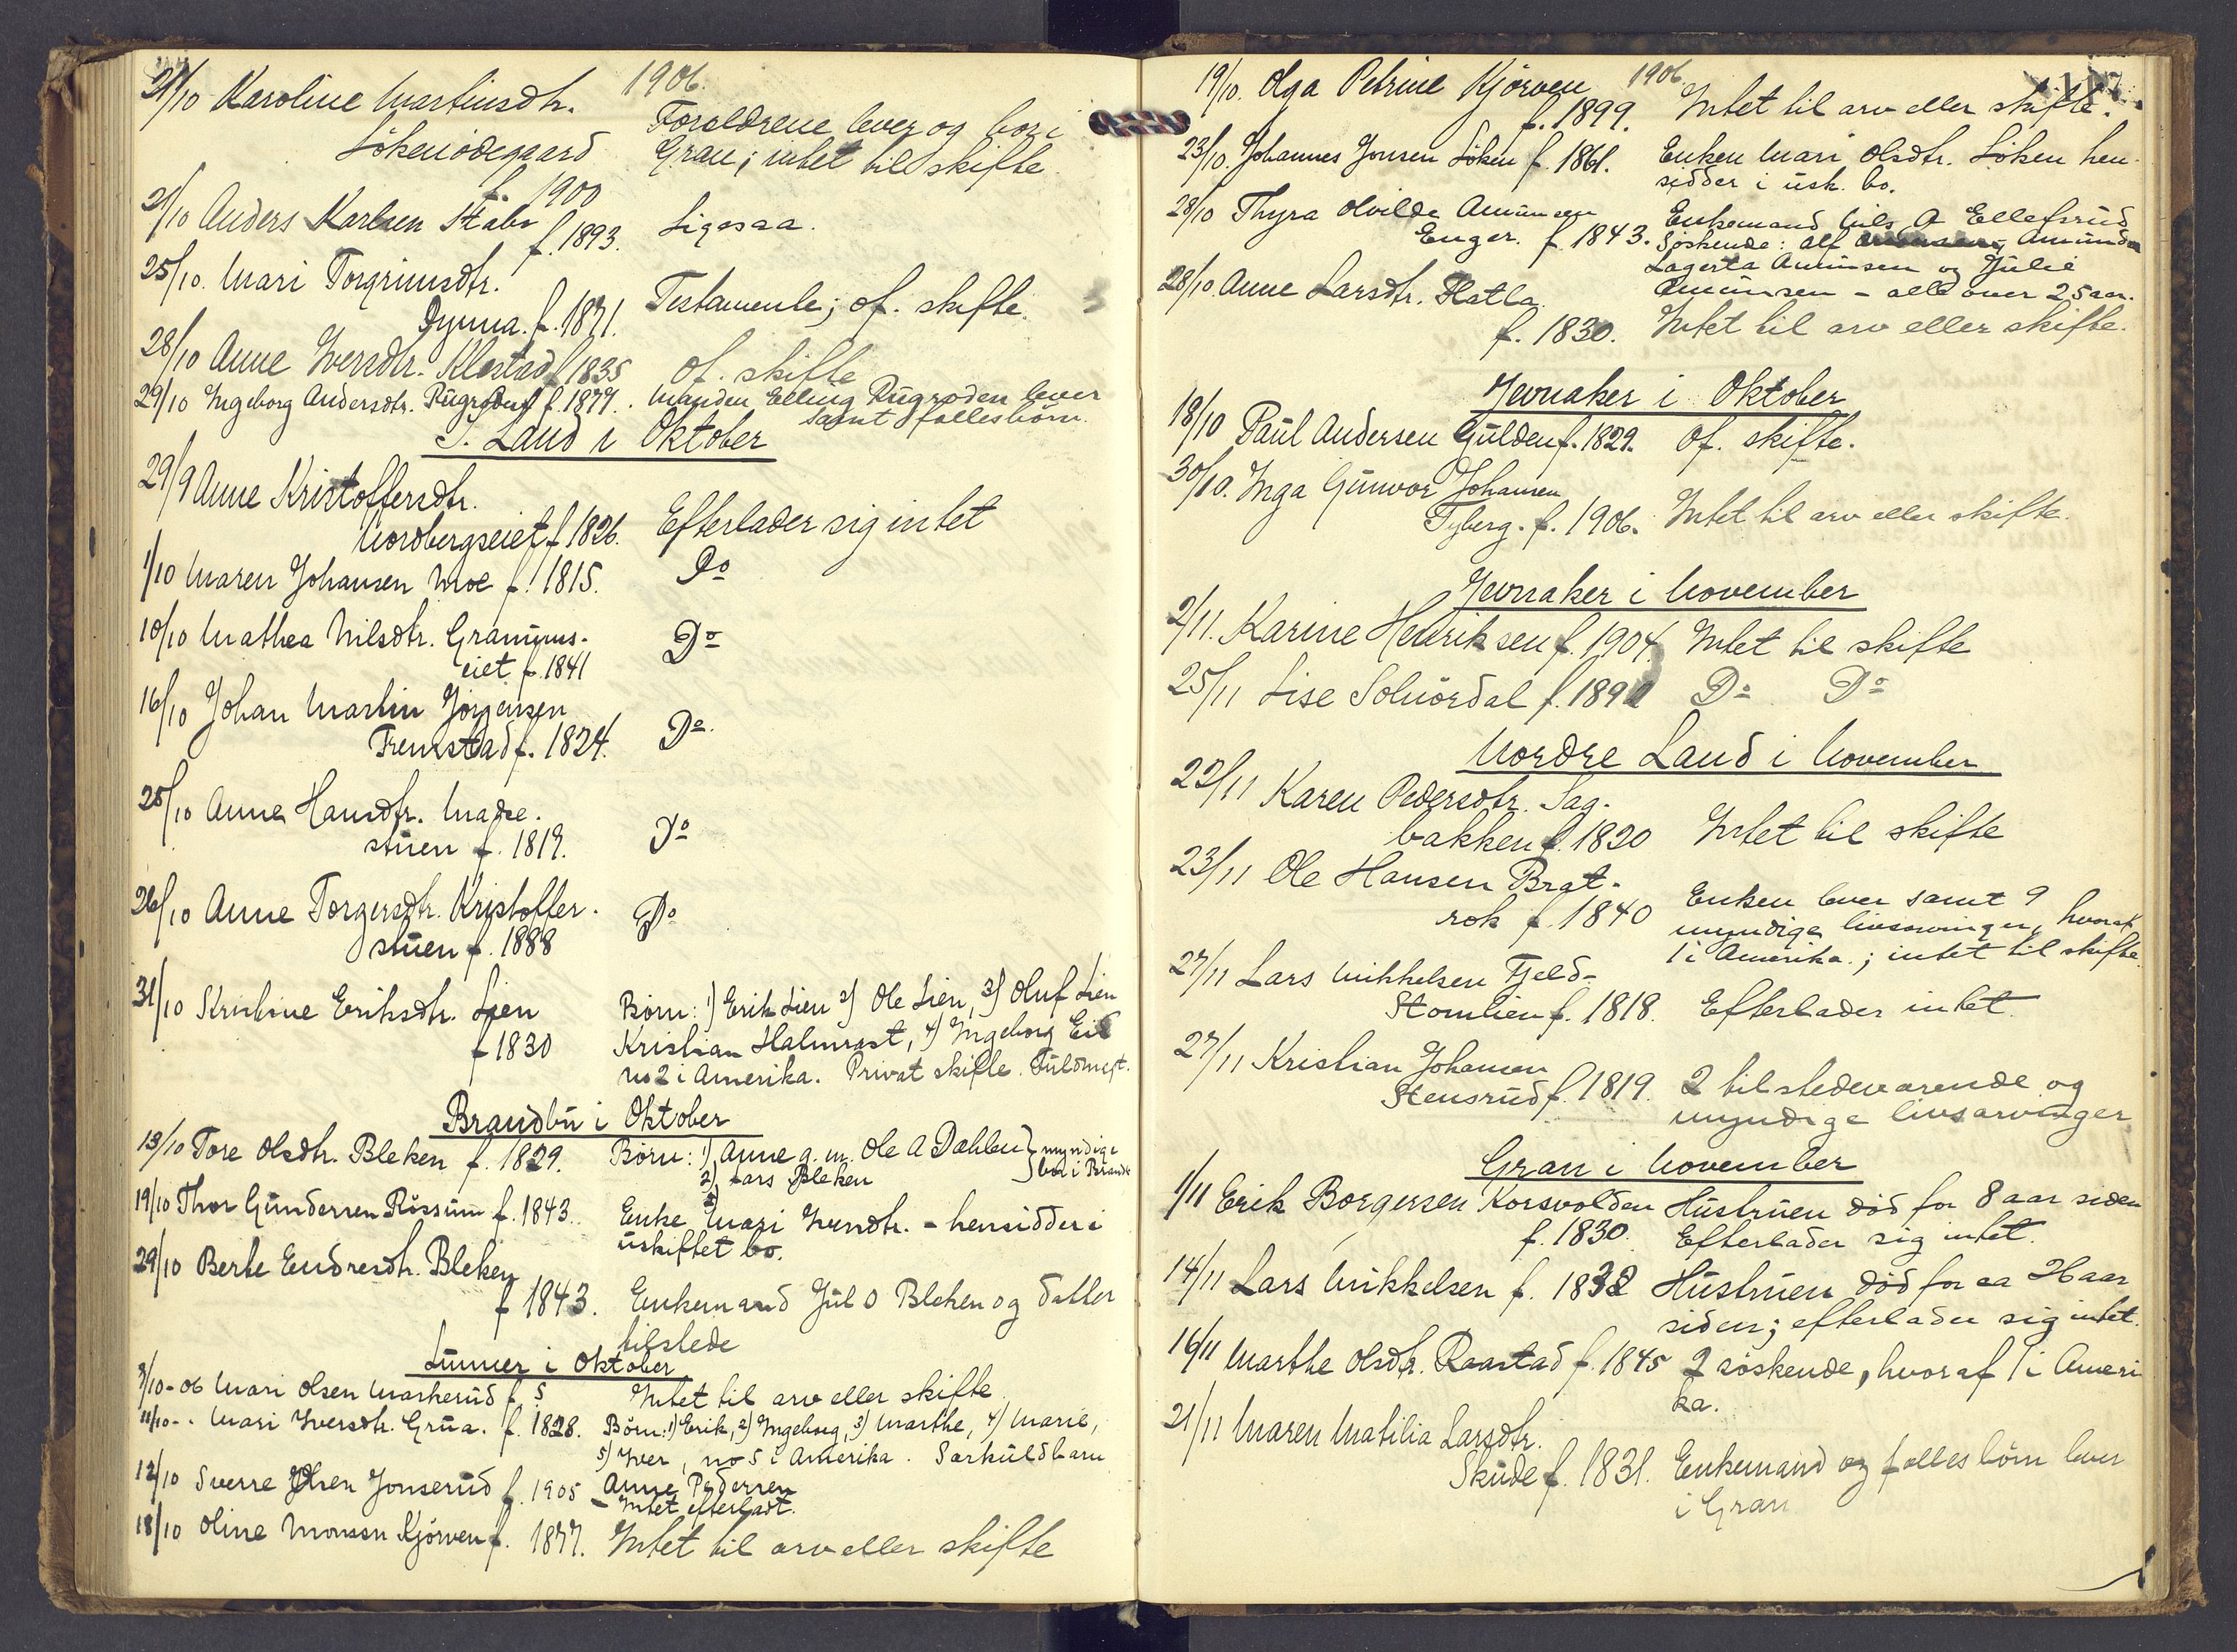 1906.
21/10 Karoline Martinsdtr. Forældrene lever og bor i
Sökenödegaard Gran; intet til skifte.
f. 1900
21/10 Anders Karlsen Stabo f. 1893. Ligesaa.
25/10. Mari Torgrimsdtr.
Dynna. f. 1871. Testamente; of. skifte.
28/10 Anne Iversdtr. Klæstad f 1835 of. skifte
29/10 Ingeborg Andersdtr. f. 1877. Manden Elling Rugroden lever
samt fællesbörn.
S. Land i Oktober
29/9 Anne Kristoffersdtr.
Nordbergseiet f 1826. Efterlader sig intet
1/10 Maren Johansen Moe f. 1815. Do
10/10 Mathea Nilsdtr. Granums-
eiet f. 1841 Do
16/10 Johan Martin Jörgensen
Fremstad f. 1824. Do.
25/10 Anne Hansdtr. Madse-
stuen f. 1819. Do
26/10 Anne Torgersdtr. Kristoffer-
stuen f. 1888 Do
31/10 Kristine Eriksdtr. Lien Börn: 1) Erik Lien 2) Ole Lien, 3) Oluf Lien
f 1830 Kristian Halmrast, 4) Ingeborg Eid
no 2 i Amerika. Privat skifte. Fuldmægt.
Brandbu i Oktober
13/10 Tore Olsdtr. Bleken f. 1829. Börn: 1) Anne g. m. Ole A Dahlen } myndige
2) Lars Bleken } bor i Brandb
19/10 Thor Gundersen Rössum f. 1843. Enke Mari Iversdtr. - hensidder i
uskiftet bo.
29/10 Berte Endresdtr. Bleken
f 1843. Enkemand Jul O Bleken og datter
tilstede
Lunner i Oktober
3/10-06 Mari Olsen Maskerud f. ? Intet til arv eller skifte.
11/10- . Mari Iversdtr. Grua. f. 1828. Börn: 1) Erik, 2) Ingeborg, 3) Marthe, 4) Marie,
5) Iver, no 5 i Amerika. Særkuldbarn
Anne Pedersen
12/10 Sverre Olsen Jonserud f. 1905 - Intet efterladt.
18/10 Oline Monssn Kjörven f. 1877. Intet til arv eller skifte
1906.
19/10. Olga Petrine Kjörven
f. 1899. Intet til arv eller skifte.
23/10. Johannes Jonsen Söken f. 1861. Enken Mari Olsdtr. Söken hen-
sidder i usk. bo.
28/10 Thyra Olvilde Amunsen Enkemand Nils A Ellefsrud
Enger. f. 1843. Söskende: Alf Amunds
Lagerta Amunsen og Julie
Amunsen - alle over 25 aar.
28/10. Anne Larsdtr. Flatla
f. 1830. Intet til arv eller skifte.
Jevnaker i Oktober
18/10 Paul Andersen Gulden f. 1829. Of. skifte.
30/10. Inga Gunvor Johansen
Tyberg. f. 1906. Intet til arv eller skifte.
Jevnaker i November
2/11. Karine Henriksen f. 1904. Intet til skifte
25/11 Lise Solnördal f. Do Do
Nordre Land i November
22/11 Karen Pedersdtr. Sag-
bakken f. 1820 Intet til skifte
23/11 Ole Hansen Brat-
rok f. 1840 Enken lever samt 9
myndige livsarvinger, hvoraf
1 i Amerika.; intet til skifte.
27/11 Lars Mikkelsen Fjeld-
Stomlien f. 1818. Efterlader intet.
27/11 Kristian Johansen
Stensrud f. 1819. 2 tilstedeværende og
myndige livsarvinger
Gran i November
1/11 Erik Borgersen Korsvolden Hustruen död for 8 aar siden
f. 1830. Efterlader sig intet.
14/11 Lars Mikkelsen f. 1832 Hustruen död for ca 26 aar
siden; efterlader sig intet.
16/11 Marthe Olsdtr. Raastad f. 1845 2 söskende, hvoraf 1 i Ameri
ka.
21/11 Maren Matilia Larsdtr.
Skude f. 1831. Enkemand og fælles börn lever
i Gran